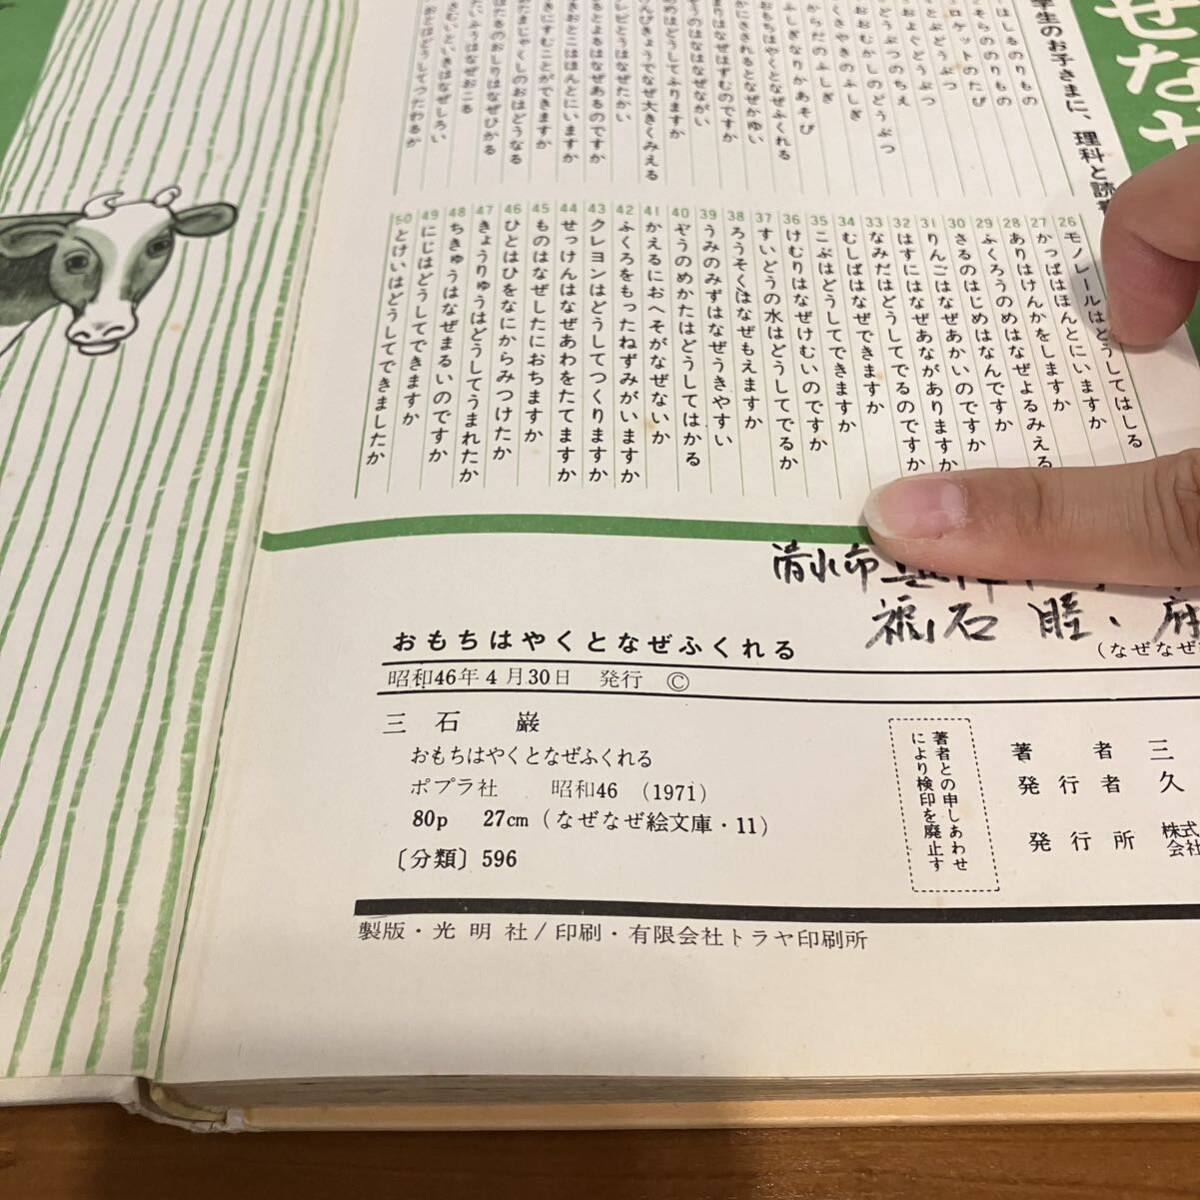 せなせ
学生のお子さまに、理科と読
はしるのりもの
そらののりもの
ロケットのたび
とぶどうぶつ
およぐどうぶつ
どうぶつのちえ
おおむかしのどうぶつ
くきやきのふしぎ
からだのふしぎ
ふしぎなりかあそび
おもちはやくとなぜふくれる
かにさされるとなぜかゆい
まりはなぜはずむのですか
ぞうのはなはなぜながい
のはどうしてふりますか
んびきょうでなぜ大きくみえる
テレビとうはなぜたかい
るとよるはなぜあるのですか
きおとこはほんとにいますか
きにすむことができますか
たまじゃくしのおはどうなる
たきのおしりはなぜひかる
26 モノレールはどうしてはしる
27 かっぱはほんとにいますか
28 ありはけんかをしますか
29 ふくろうのめはなぜよるみえる
30 さるのはじめはなんですか
31 りんごはなぜあかいのですか
32 はすにはなぜあながありますか
33 なみだはどうしてでるのですか
34 むしばはなぜできますか
35 こぶはどうしてできますか
36 けむりはなぜけむいのですか
37 すいどうの水はどうしてでるか
38 ろうそくはなぜもえますか
39 うみのみずはなぜうきやすい
40 ぞうのめかたはどうしてはかる
41 かえるにおへそがなぜないか
42 ふくろをもったねずみがいますか
43 クレヨンはどうしてつくりますか
44 せっけんはなぜあわをたてますか
45 ものはなぜしたにおちますか
46 ひとはひをなにからみつけたか
47 きょうりゅうはどうしてうまれたか
48 ちきゅうはなぜまるいのですか
49 にじはどうしてできますか
50 とけいはどうしてできましたか
清水市
おもちはやくとなぜふくれる
(なぜなぜ
昭和46年4月30日 発行 ©
三石 巌
おもちはやくとなぜふくれる
ポプラ社 昭和46 (1971)
80p 27cm (なぜなぜ絵文庫・11)
〔分類〕596
著者との申しあわせ
により検印を廃止す
著者 三
発行者 久
発行所 株式会社
製版・光明社/印刷・有限会社トラヤ印刷所